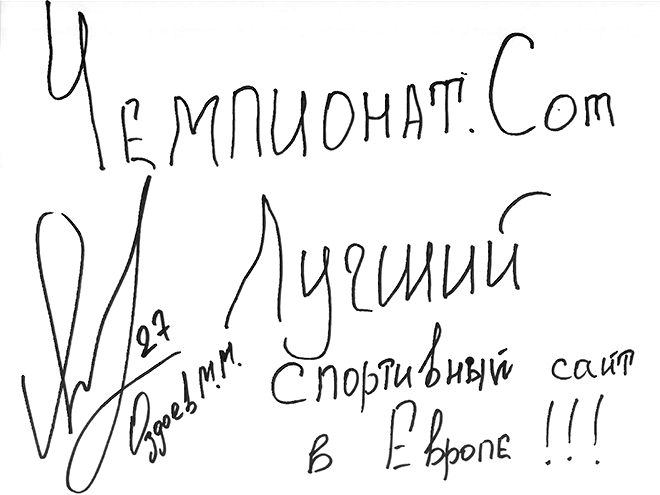 Чемпионат.Com
Лучший
спортивный сайт
в Европе!!!
27
Оздоев М.М.